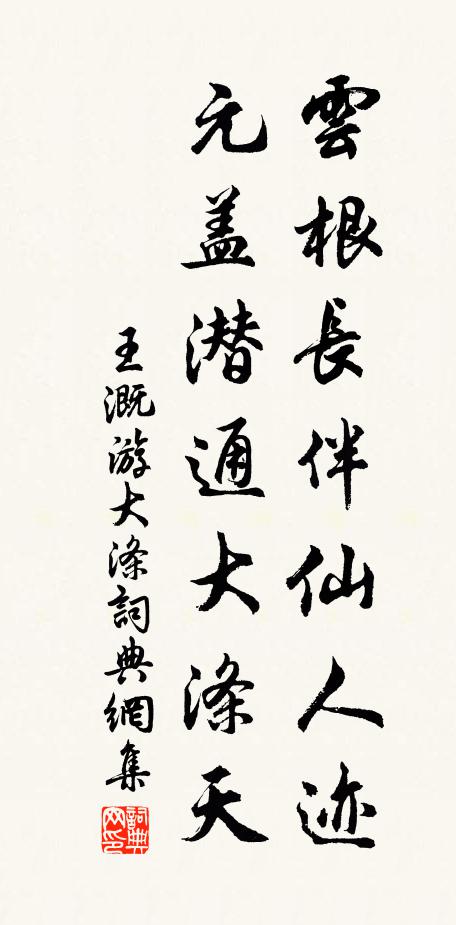 雲根長伴仙人迹
元盖潜通大涤天
王溉游大涤詞典網集
詞典网印